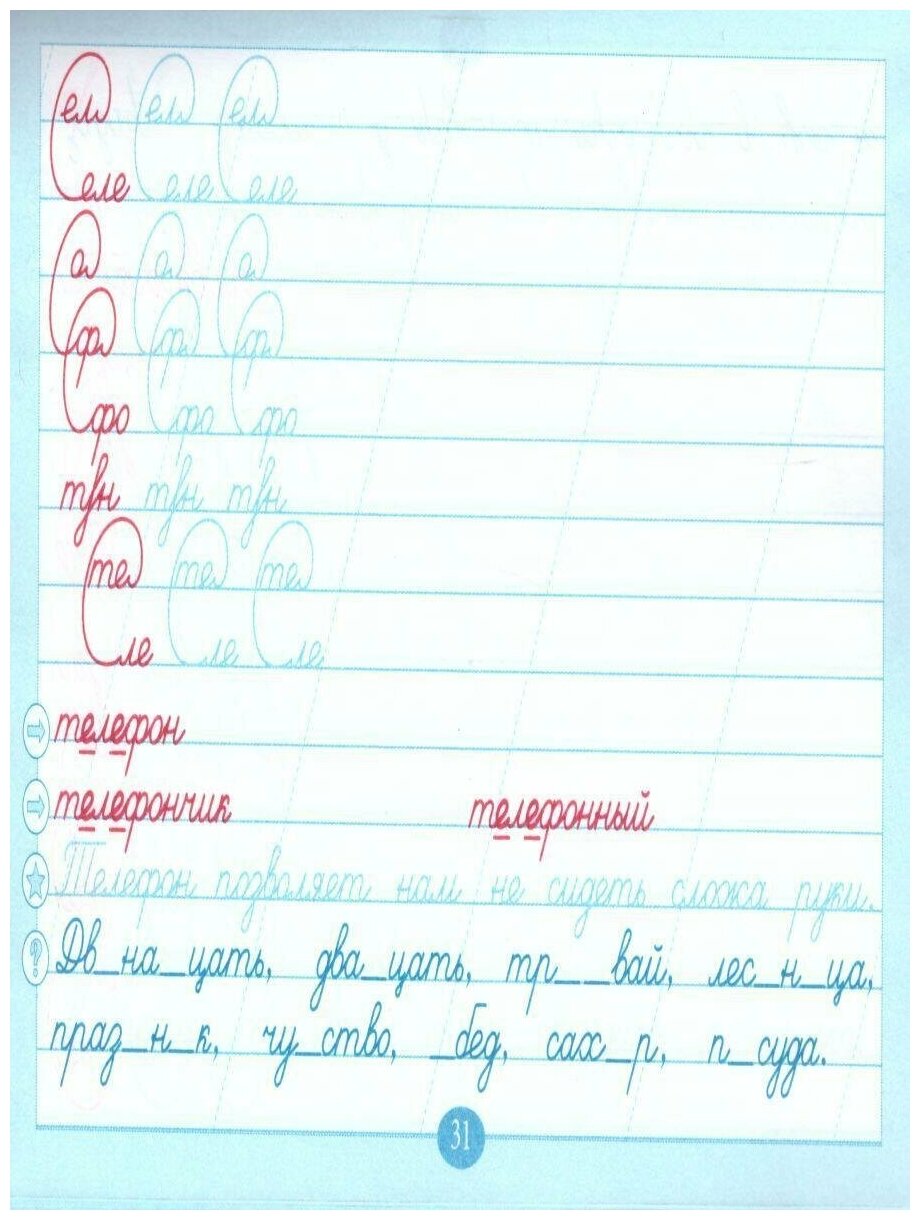 ем ем ем
еле еле еле
а а а
фа фа фа
фо фо фо
тβн тβн тβн
те те те
ле ле ле
телефон
телефончик телефонный
Телефон позволяет нам не сидеть сложа руки.
? Дв_на_цать, два_цать, тр_ _вай, лес_н_ца,
праз_н_к, чу_ство, _бед, сах_р, п_суда.
31